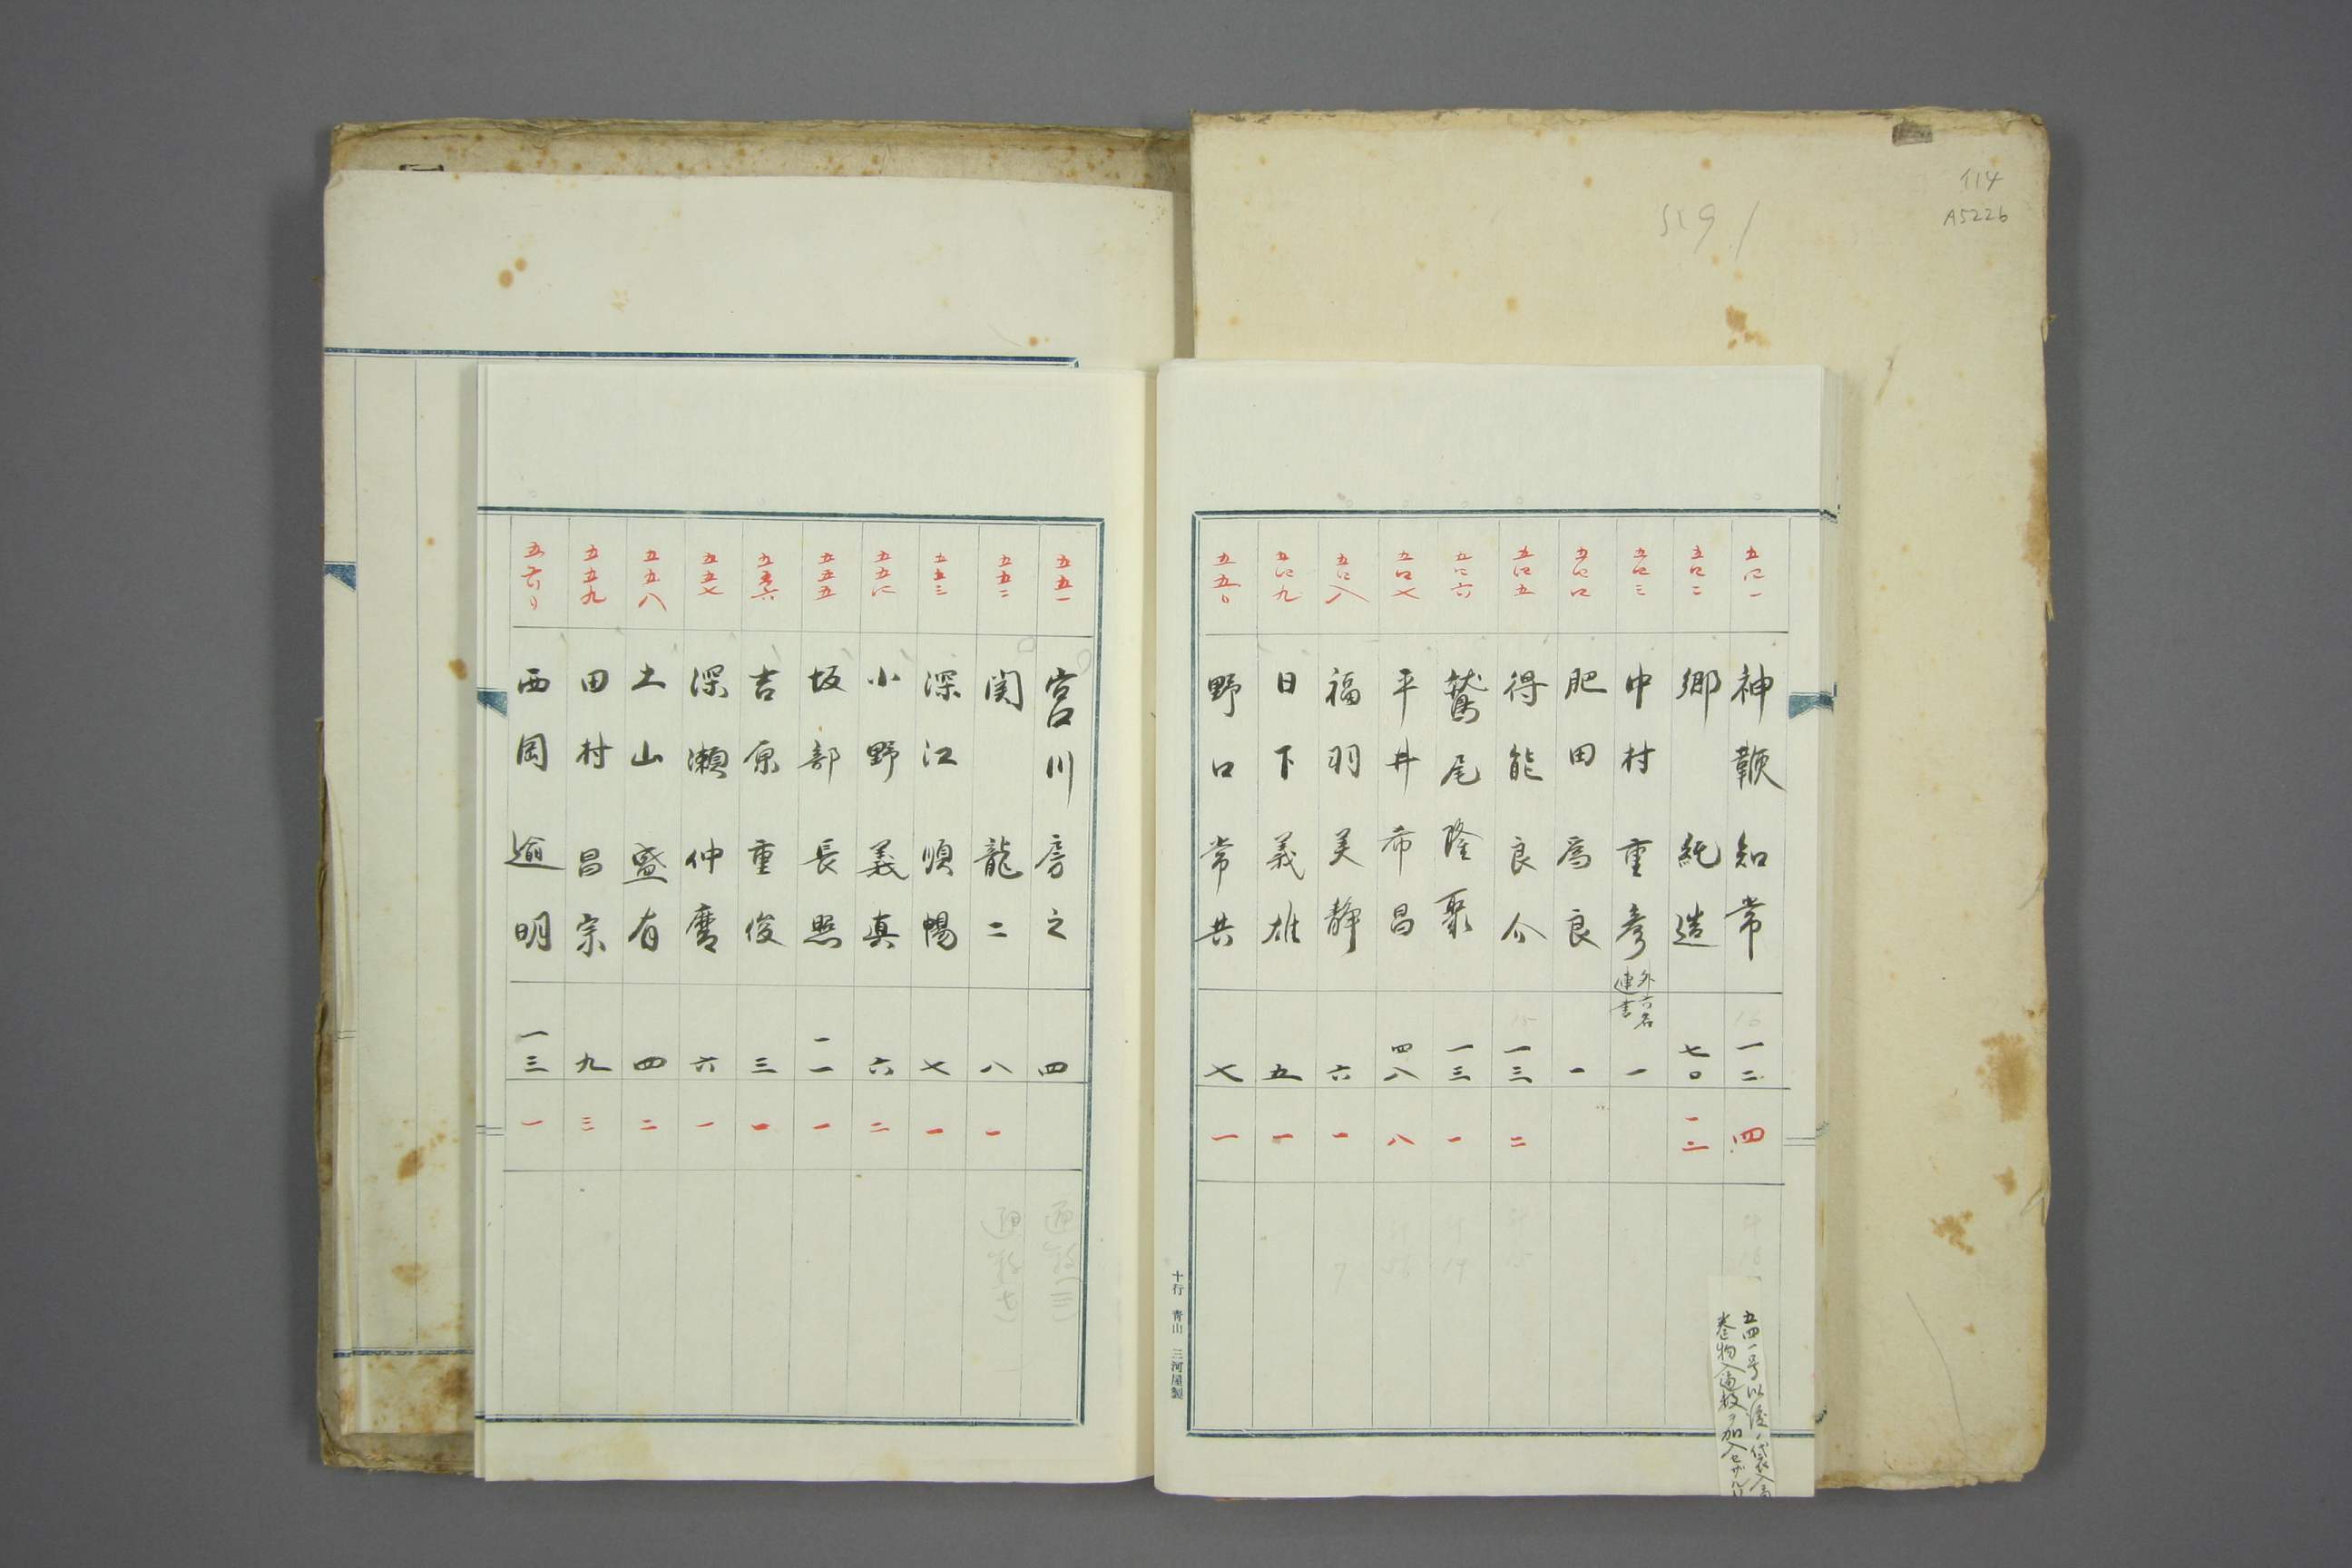 114
A5226
五四一 神鞭知常 一二 四
五四二 郷純造 七〇 一二
五四三 中村重彦 外六名連書 一
五四四 肥田為良 一
五四五 得能良介 一三 二
五四六 鷲尾隆聚 一三 一
五四七 平井希昌 四八 八
五四八 福羽美静 六 一
五四九 日下義雄 五 一
五五〇 野口常共 七 一
五四一号以後ノ袋入
巻物入通数ヲ加入セザル
十行 青山 三河屋製
五五一 宮川房之 四
通数(三)
五五二 関龍二 八 一
通数(七)
五五三 深江順暢 七 一
五五四 小野義真 六 二
五五五 坂部長照 一一 一
五五六 吉原重俊 三 一
五五七 深瀬仲麿 六 一
五五八 土山盛有 四 二
五五九 田村昌宗 九 三
五六〇 西岡逾明 一三 一